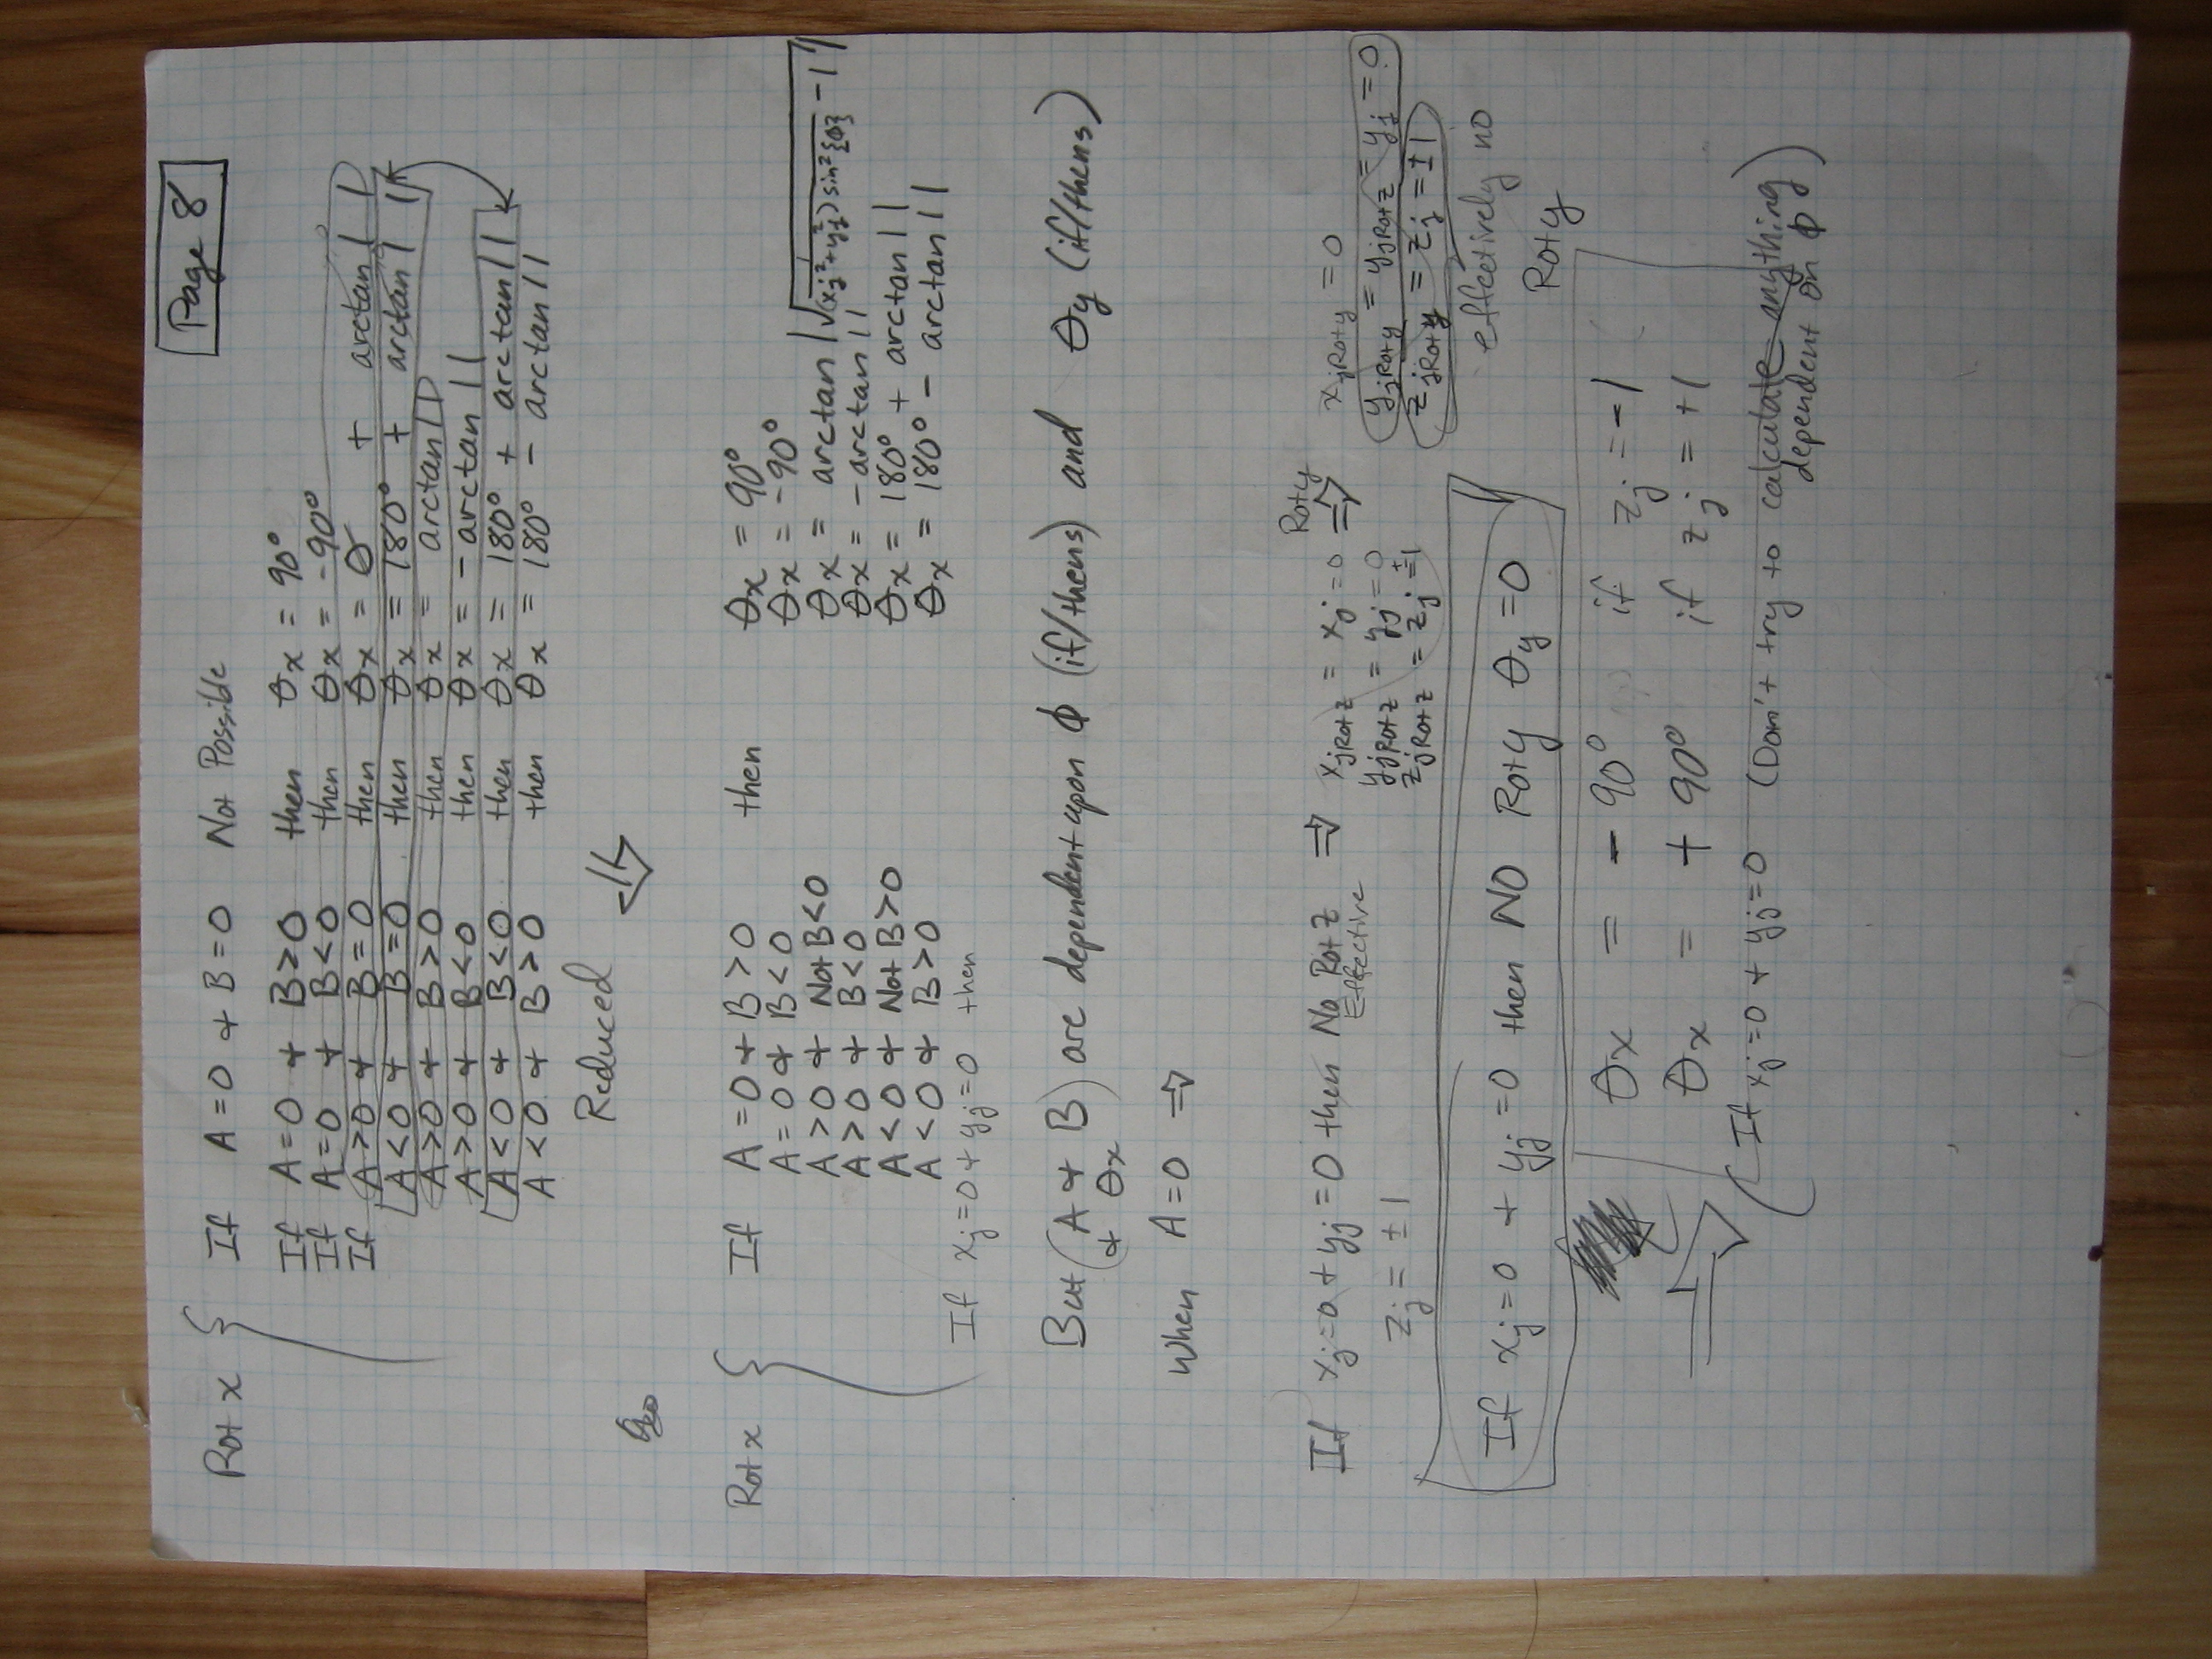 Page 8
Rot x { If A=0 + B=0 Not Possible
If A=0 + B>0 then θx = 90°
If A=0 + B<0 then θx = -90°
If A>0 + B=0 then θx = 0 + arctan | |
A<0 + B=0 then θx = 180° + arctan | |
A>0 + B>0 then θx = arctan | |
A>0 + B<0 then θx = - arctan | |
A<0 + B<0 then θx = 180° + arctan | |
A<0 + B>0 then θx = 180° - arctan | |
Reduced
Rot x { If A=0 + B>0 then θx = 90°
A=0 + B<0 θx = -90°
A>0 + Not B<0 θx = arctan | √(xj²+yj²) sin²{ϕ} - 1 |
A>0 + B<0 θx = - arctan | |
A<0 + Not B>0 θx = 180° + arctan | |
A<0 + B>0 θx = 180° - arctan | |
If xj=0 + yj=0 then
But (A + B) are dependent upon ϕ (if/thens) and θy (if/thens)
+ θx
When A=0 ⇒
If xj=0 + yj=0 then No Rot z ⇒ xjRotz = xj = 0 Roty ⇒ xjRoty = 0
Effective
zj = ±1
yjRotz = yj = 0
zjRotz = zj = ±1
yjRoty = yjRotz = yj = 0
zjRoty = zj = ±1
effectively no
Roty
If xj=0 + yj=0 then NO Roty θy=0
θx = -90° if zj = -1
θx = +90° if zj = +1
(If xj=0 + yj=0 (Don't try to calculate anything
dependent on ϕ)